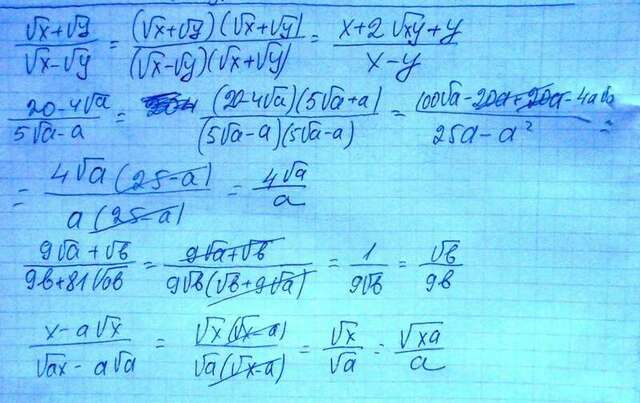 (√x+√y)/(√x-√y) = (√x+√y)(√x+√y)/(√x-√y)(√x+√y) = (x+2√xy+y)/(x-y)
(20-4√a)/(5√a-a) = (20-4√a)(5√a+a)/(5√a-a)(5√a-a) = (100√a-20a+20a-4a√a)/(25a-a²) =
= 4√a(25-a)/a(25-a) = 4√a/a
(9√a+√b)/(9b+81√ab) = (9√a+√b)/9√b(√b+9√a) = 1/9√b = √b/9b
(x-a√x)/(√ax-a√a) = √x(√x-a)/√a(√x-a) = √x/√a = √xa/a